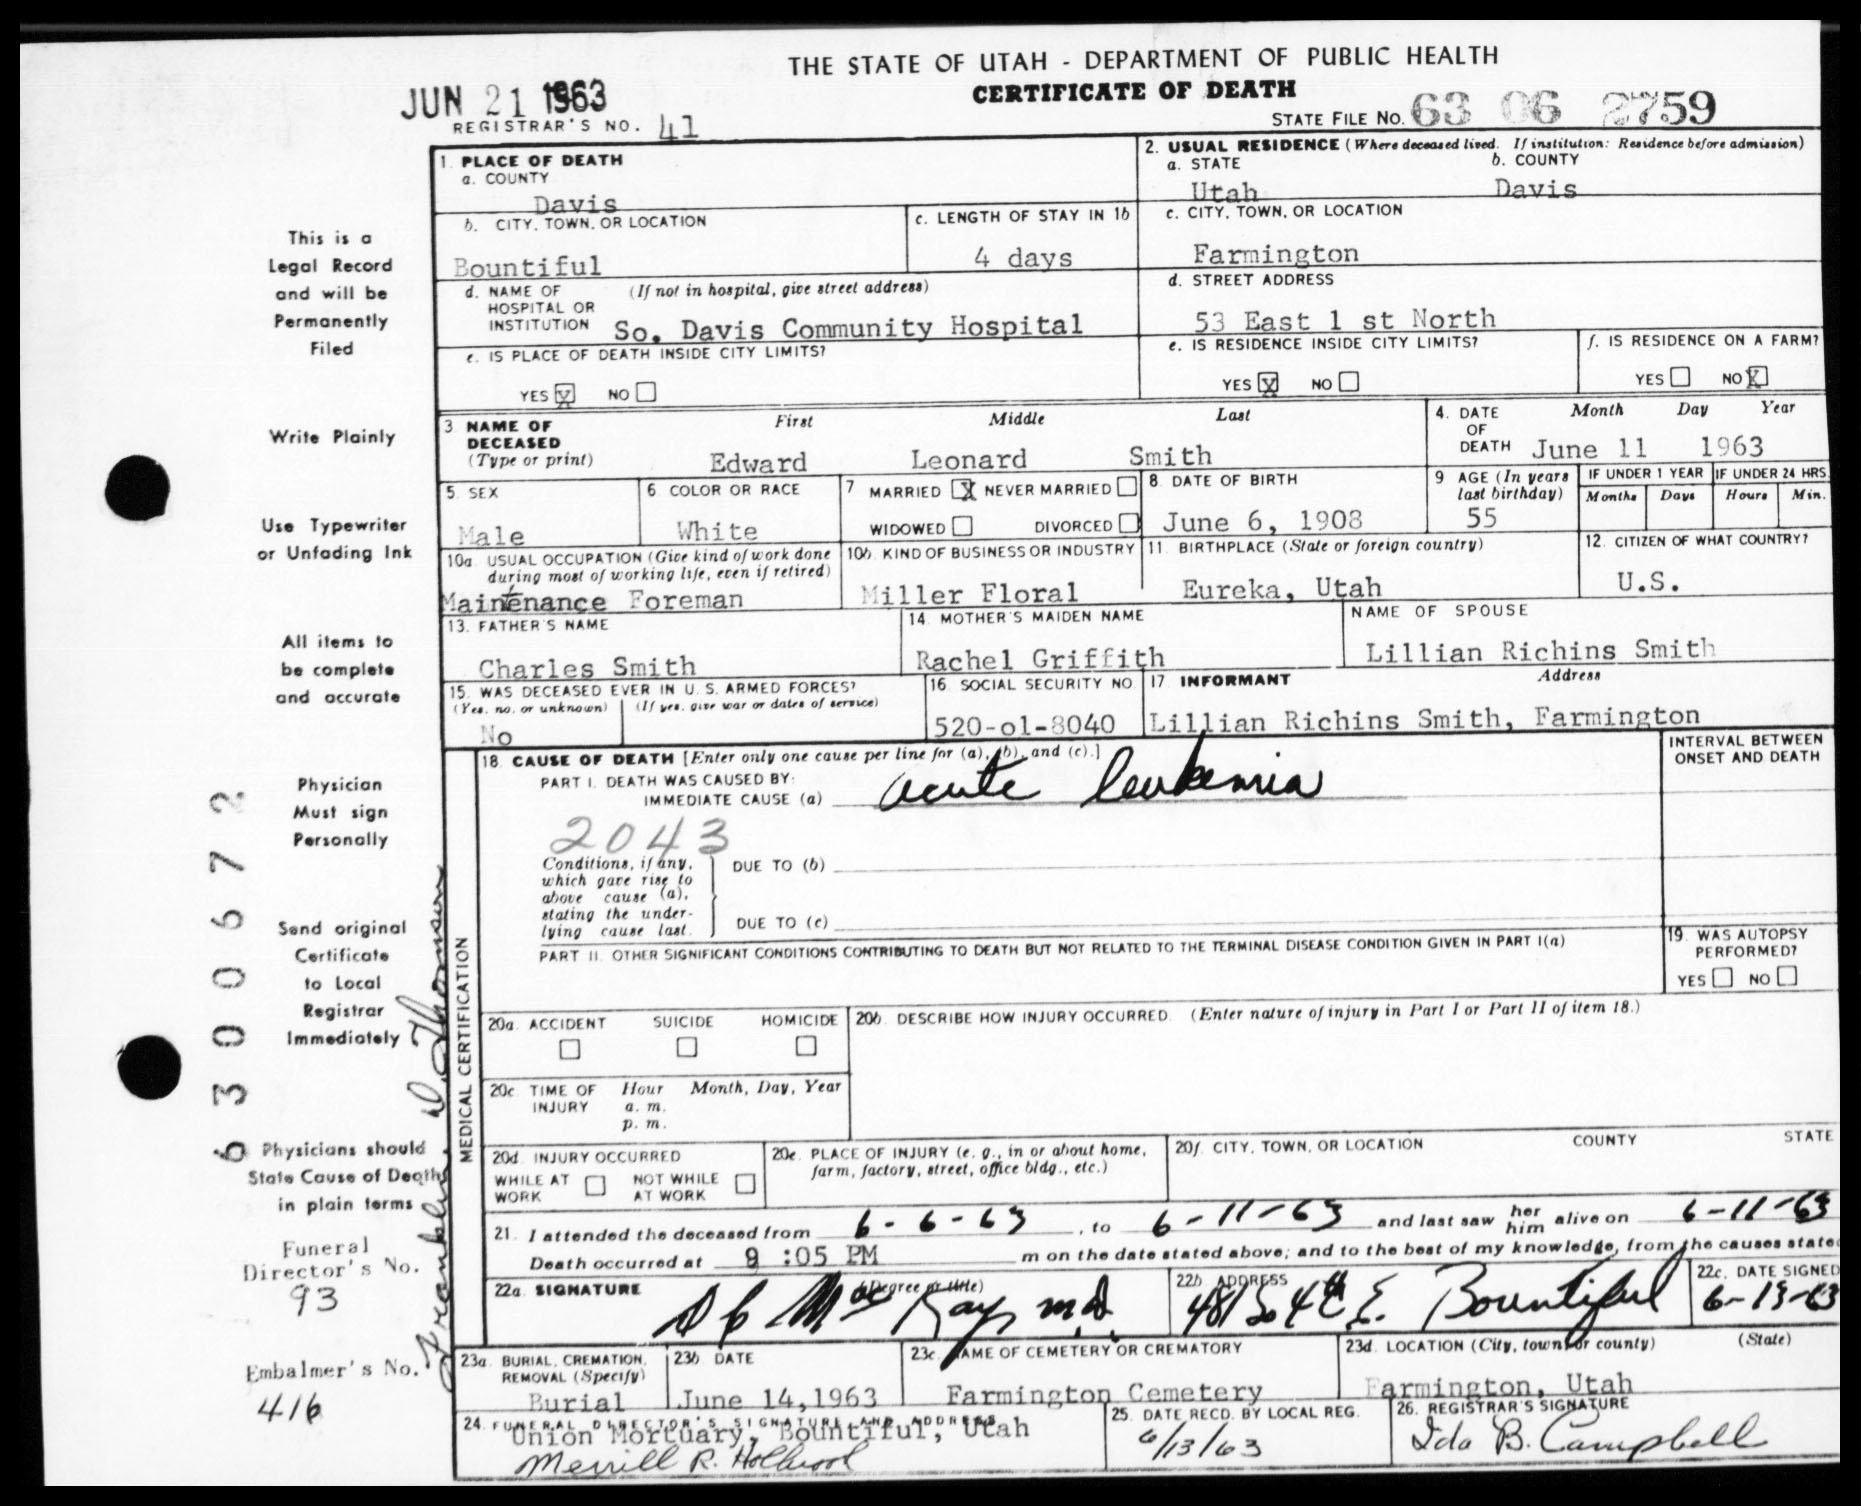 THE STATE OF UTAH - DEPARTMENT OF PUBLIC HEALTH
CERTIFICATE OF DEATH
JUN 21 1963
REGISTRAR'S NO. 41
STATE FILE NO. 63 06 2759
This is a
Legal Record
and will be
Permanently
Filed
Write Plainly
Use Typewriter
or Unfading Ink
All items to
be complete
and accurate
Physician
Must sign
Personally
Send original
Certificate
to Local
Registrar
Immediately
Physicians should
State Cause of Death
in plain terms
Funeral
Director's No.
93
Embalmer's No.
416
6300672
Franklin D. Thomson
1. PLACE OF DEATH
a. COUNTY
Davis
2. USUAL RESIDENCE (Where deceased lived. If institution: Residence before admission)
a. STATE b. COUNTY
Utah Davis
b. CITY, TOWN, OR LOCATION
Bountiful
c. LENGTH OF STAY IN 1b
4 days
c. CITY, TOWN, OR LOCATION
Farmington
d. NAME OF (If not in hospital, give street address)
HOSPITAL OR
INSTITUTION So. Davis Community Hospital
d. STREET ADDRESS
53 East 1 st North
e. IS PLACE OF DEATH INSIDE CITY LIMITS?
YES X NO
e. IS RESIDENCE INSIDE CITY LIMITS?
YES X NO
f. IS RESIDENCE ON A FARM?
YES NO X
3 NAME OF First Middle Last
DECEASED
(Type or print) Edward Leonard Smith
4. DATE Month Day Year
OF
DEATH June 11 1963
5. SEX
Male
6. COLOR OR RACE
White
7 MARRIED X NEVER MARRIED
WIDOWED DIVORCED
8. DATE OF BIRTH
June 6, 1908
9 AGE (In years
last birthday)
55
IF UNDER 1 YEAR
Months Days
IF UNDER 24 HRS.
Hours Min.
10a. USUAL OCCUPATION (Give kind of work done
during most of working life, even if retired)
Maintenance Foreman
10b. KIND OF BUSINESS OR INDUSTRY
Miller Floral
11. BIRTHPLACE (State or foreign country)
Eureka, Utah
12. CITIZEN OF WHAT COUNTRY?
U.S.
13. FATHER'S NAME
Charles Smith
14. MOTHER'S MAIDEN NAME
Rachel Griffith
NAME OF SPOUSE
Lillian Richins Smith
15. WAS DECEASED EVER IN U.S. ARMED FORCES?
(Yes, no, or unknown) (If yes, give war or dates of service)
No
16. SOCIAL SECURITY NO.
520-ol-8040
17. INFORMANT Address
Lillian Richins Smith, Farmington
18. CAUSE OF DEATH [Enter only one cause per line for (a), (b), and (c).]
PART I. DEATH WAS CAUSED BY:
IMMEDIATE CAUSE (a) acute leukemia
INTERVAL BETWEEN
ONSET AND DEATH
2043
Conditions, if any,
which gave rise to
above cause (a),
stating the under-
lying cause last.
DUE TO (b)
DUE TO (c)
PART II. OTHER SIGNIFICANT CONDITIONS CONTRIBUTING TO DEATH BUT NOT RELATED TO THE TERMINAL DISEASE CONDITION GIVEN IN PART I(a)
19. WAS AUTOPSY
PERFORMED?
YES NO
MEDICAL CERTIFICATION
20a. ACCIDENT SUICIDE HOMICIDE
20b. DESCRIBE HOW INJURY OCCURRED. (Enter nature of injury in Part I or Part II of item 18.)
20c. TIME OF Hour Month, Day, Year
INJURY a. m.
p. m.
20d. INJURY OCCURRED
WHILE AT WORK NOT WHILE AT WORK
20e. PLACE OF INJURY (e. g., in or about home,
farm, factory, street, office bldg., etc.)
20f. CITY, TOWN, OR LOCATION COUNTY STATE
21. I attended the deceased from 6-6-63, to 6-11-63 and last saw her him alive on 6-11-63
Death occurred at 9 :05 PM m on the date stated above; and to the best of my knowledge, from the causes state
22a. SIGNATURE (Degree or title)
D C MacKay m.d.
22b. ADDRESS
481 So 4th E. Bountiful
22c. DATE SIGNED
6-13-63
23a. BURIAL, CREMATION,
REMOVAL (Specify)
Burial
23b. DATE
June 14, 1963
23c. NAME OF CEMETERY OR CREMATORY
Farmington Cemetery
23d. LOCATION (City, town, or county) (State)
Farmington, Utah
24. FUNERAL DIRECTOR'S SIGNATURE AND ADDRESS
Union Mortuary, Bountiful, Utah
Merrill R. Holbrook
25. DATE RECD. BY LOCAL REG.
6/13/63
26. REGISTRAR'S SIGNATURE
Ida B. Campbell